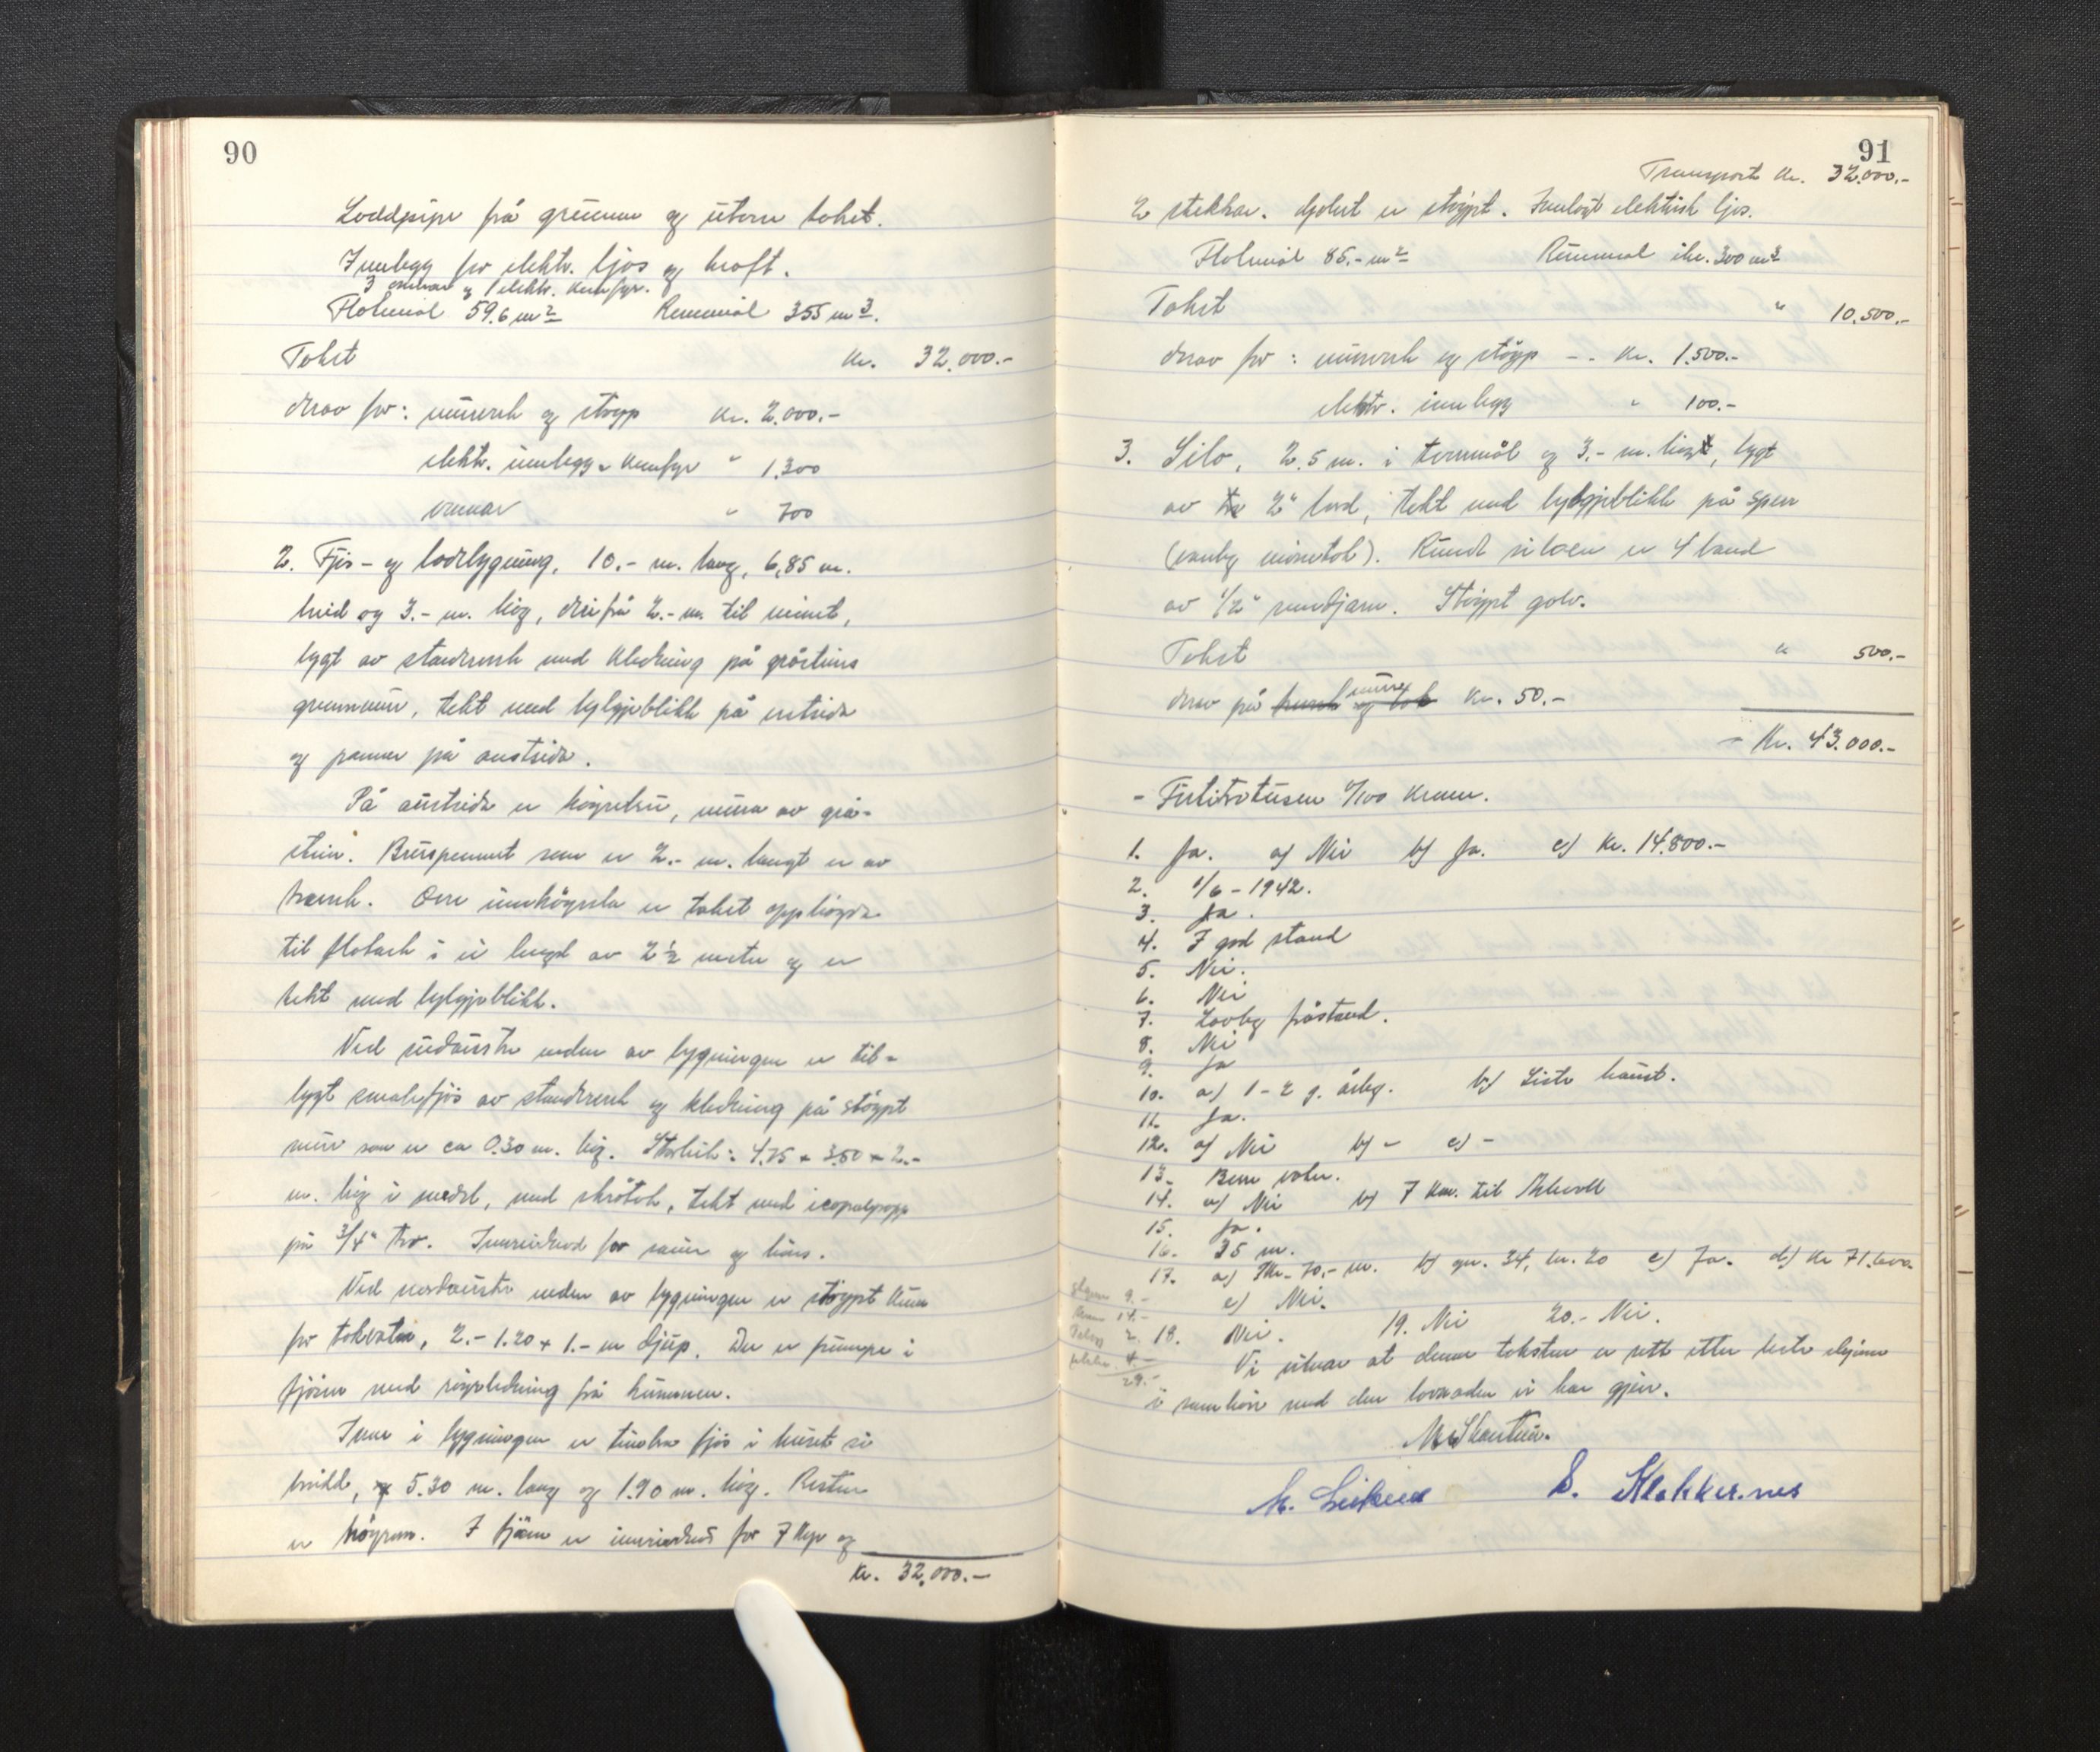 90
Loddpipe frå grunnen og utom taket.
Innlegg for elektr. ljos og kraft.
3 omnar og 1 elektr. komfyr.
Flatmål 59.6 m² Rummål 355 m³.
Takst Kr. 32.000.-
Derav for: murverk og støyp Kr. 2.000.-
elektr. innlegg + komfyr " 1.300
omnar " 700
2. Fjös- og lödebygning, 10.- m. lang, 6,85 m.
breid og 3.- m. høg, derifrå 2.- m. til mönet,
bygt av standverk med kledning på gråsteins
grunnmur, tekt med bylgjeblikk på vestsida
og panner på austsida.
På austsida er høybru, mura av grå-
stein. Bruspennet som er 2.- m. langt er av
treverk. Over innkøyrsla er taket opphøgda
til flatark i ei lengd av 2½ meter og er
tekt med bylgjeblikk.
Ved sudaustre enden av bygningen er til-
bygt smalefjös av standverk og kledning på støypt
mur som er ca 0.30 m. høg. Storleik: 4.75 × 3.50 × 2.-
m. høg i medel, med skråtak, tekt med icopalpapp
på 3/4" tro. Innreidned for sauer og höns.
Ved nordaustre enden av bygningen er støypt kum
for takvatn, 2.- 1.20 + 1.- m djup. Der er pumpe i
fjösen med røyrledning frå kummen.
Inne i bygningen er timbra fjös i huset si
breidd, 5.30 m. lang og 1.90 m. høg. Resten
er høyrom. I fjösen er innreidned for 7 kyr og
Kr. 32.000.-
91
Transport kr. 32.000.-
2 stekkar. Golvet er støypt. Innlagt elektrisk ljos.
Flatmål 85.- m² Rummål ikr. 300 m³
Takst " 10.500.-
Derav for: murverk og støyp - - Kr. 1.500.-
elektr. innlegg " 100.-
3. Silo, 2.5 m. i tvermål og 3.- m. høg, bygt
av 2" bord, tekt med bylgjeblikk på sperr
(vanleg mönetak). Rundt siloen er 4 band
av 1/2" rundjarn. Støypt golv.
Takst " 500.-
Derav på mur Kr. 50.-
- Kr. 43.000.-
- Førtitretusen 0/100 kroner.
1. Ja. a) Nei b) Ja. c) Kr. 14.800.-
2. 1/6 - 1942.
3. Ja.
4. I god stand
5. Nei.
6. Nei
7. Lovleg påstand.
8. Nei
9. Ja
10. a) 1 - 2 g. årleg. b) Siste haust.
11. Ja.
12. a) Nei b) - c) -
13. Berre vatn.
14. a) Nei b) 7 km. til
15. Ja.
16. 35 m.
17. a) 70,- m. b) gnr. 34, br. 20 c) Ja. d) Kr 71.600.
e) Nei.
18. Nei. 19. Nei 20.- Nei.
9.-
14.-
2.
4.-
29.-
Vi vitnar at denne taksten er sett etter beste skjønn
i samhøve med den lovnaden vi har gjeve.
S. Klokkernes